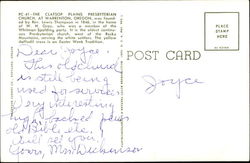 PC-41-THE CLATSOP PLAINS PRESBYTERIAN
CHURCH, AT WARRENTON, OREGON, was found-
ed by Rev. Lewis Thompson in 1846, in the home
of W. H. Gray, who was a member of the
Whitman Spalding party. It is the oldest continu-
ous Presbyterian church, west of the Rocky
Mountains, serving the white settlers. The yellow
daffodil cross is an Easter Week Tradition.
POST CARD
PLACE
STAMP
HERE
Dear Joyce
This old church
is still being
used for services
Very interesting
high backed pews
old Bible etc.
built so well
Mrs. Dickinson
Joyce